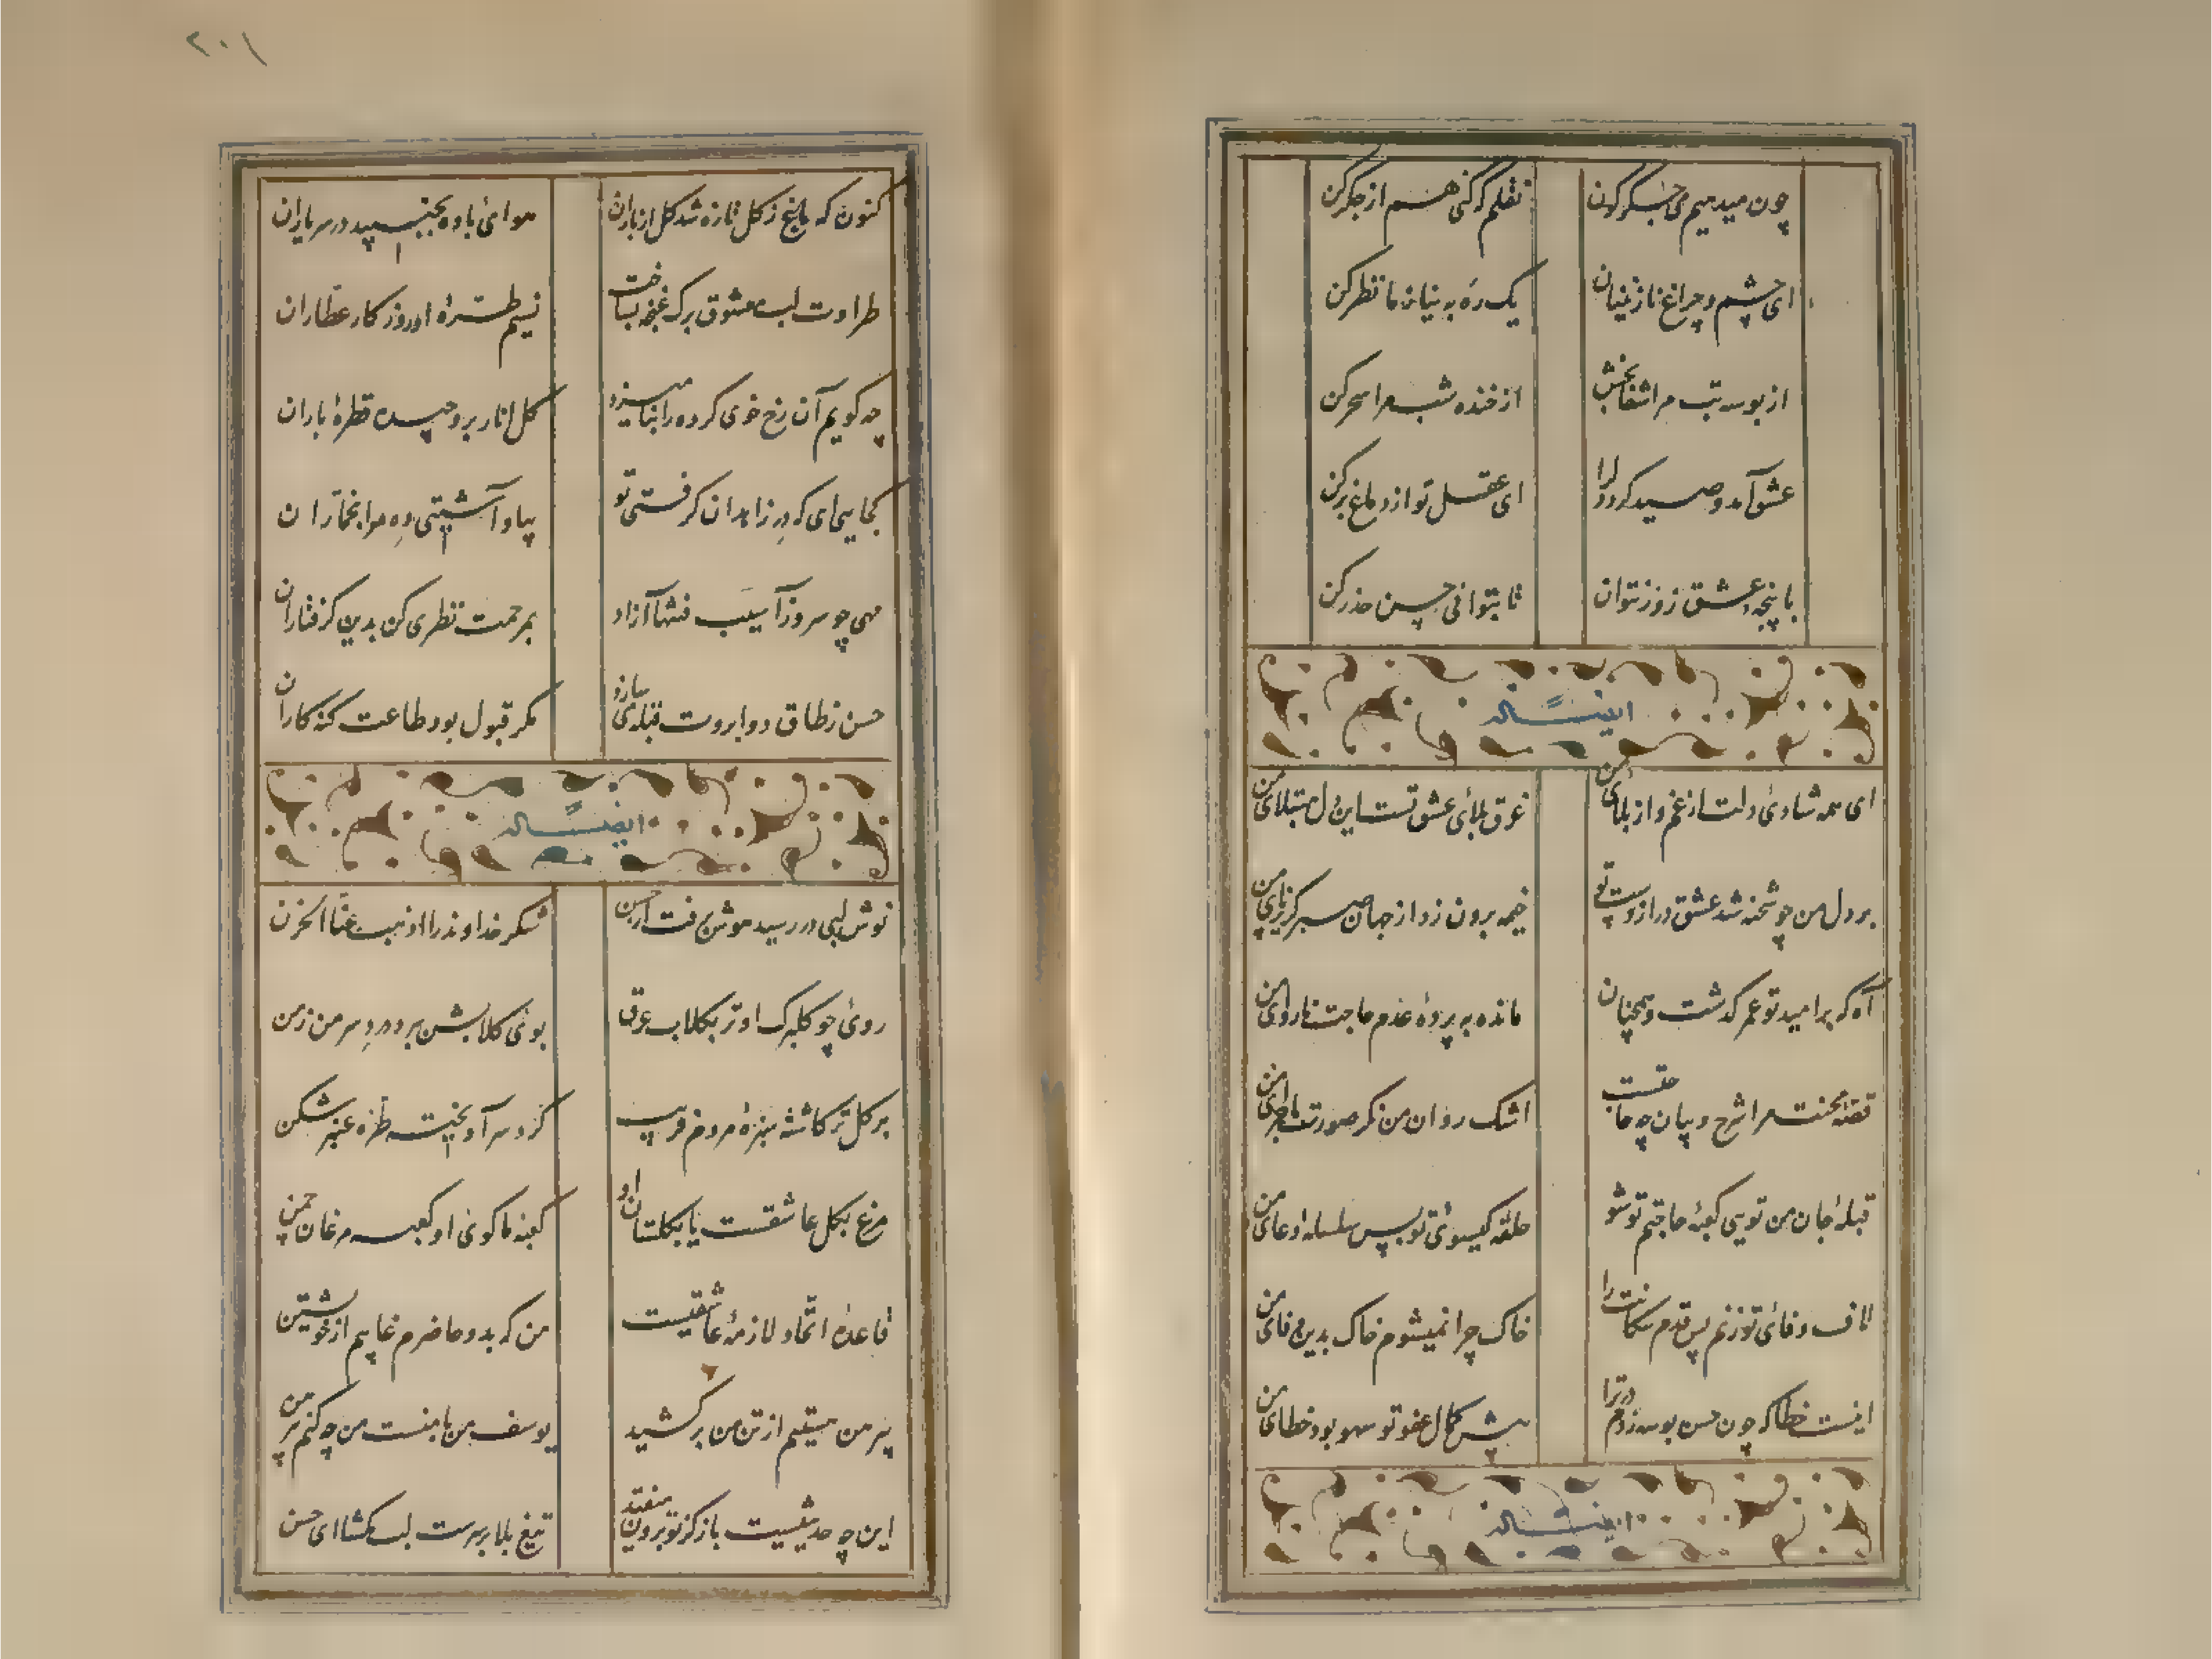 چون میدهیم می جگرگون نقلم گر کنی هم از جگر کن
ای چشم و چراغ نازنینان یک ره به نیاز ما نظر کن
از بوسه تب مرا شفا بخش از خنده شب مرا سحر کن
عشق آمد و صید کرد دل را ای عقل تو از دماغ بر کن
با پنجه عشق زور نتوان تا بتوانی حسن حذر کن
ایضاً له
ای همه شادئ دلت از غم و از بلای من غرق بلائ عشق تست این دل مبتلای من
بر دل من چو شحنه شد عشق دراز دست تو خیمه برون زد از جهان صبر گریزپای من
آه که بر امید تو عمر گذشت و همچنان مانده به پردۀ عدم حاجت ناروای من
قصۀ محنت مرا شرح و بیان چه حاجتست اشک روان من نگر صورت ماجرای من
قبلۀ جان من تویی کعبۀ حاجتم تو شو حلقه گیسوئ تو بس سلسله دعای من
لاف وفائ تو زنم پس قدم سگانت را خاک چرا نمیشوم خاک بدین وفای من
اینست خطا که چون حسن بوسه زدم در ترا پیش کمال عفو تو سهو بود خطای من
ایضاً له
۲۰۱
کنون که باغ ز گل تازه شد گل از باران هوائ باده بجنبید در سر یاران
طراوت لب معشوق برگ غنچه بساخت نسیم طرۀ او روز کار عطاران
چه گویم آن رخ خوی کرده را بنامیزد گل انار برو چیده قطرۀ باران
کجایی ای که در زاهدان گرفتستی تو بیا و آشتیی ده مرا بخماران
مهی چو سرو ز آسیب فتنها آزاد بمرحمت نظری کن بدین گرفتاران
حسن ز طاق دو ابروت قبله‌ی سازد مگر قبول بود طاعت گنه کاران
ایضاً له
نوش لبی در رسید هوش برفت از حسن شکر خداوند را اذهب عنا الحزن
روئ چو گلبرگ او تر بگلاب عرق بوئ گلابش ببرد درد سر من ز من
بر گل تر کاشته سبزۀ مردم فریب گرد سر آویخته طرۀ عنبر شکن
مرغ بگل عاشقست یا بگلستان او کعبۀ ما کوئ او کعبه مرغان چمن
قاعدۀ اتحاد لازمۀ عاشقیست من که بدو حاضرم غایبم از خویشتن
پیرهن هستیم از تن من بر کشید یوسف من با منست من چه کنم پیرهن
این چه حدیثیست باز کز تو برون میفتد تیغ بلا بر سرست لب مگشا ای حسن